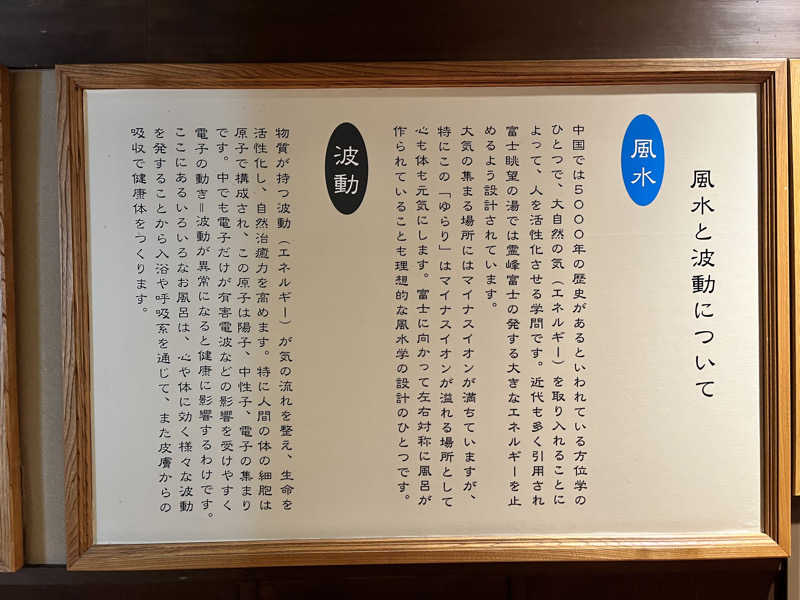 風水と波動について
風水
中国では5000年の歴史があるといわれている方位学の
ひとつで、大自然の気（エネルギー）を取り入れることに
よって、人を活性化させる学問です。近代も多く引用され
富士眺望の湯では霊峰富士の発する大きなエネルギーを止
めるよう設計されています。
大気の集まる場所にはマイナスイオンが満ちていますが、
特にこの「ゆらり」はマイナスイオンが溢れる場所として
心も体も元気にします。富士に向かって左右対称に風呂が
作られていることも理想的な風水学の設計のひとつです。
波動
物質が持つ波動（エネルギー）が気の流れを整え、生命を
活性化し、自然治癒力を高めます。特に人間の体の細胞は
原子で構成され、この原子は陽子、中性子、電子の集まり
です。中でも電子だけが有害電波などの影響を受けやすく
電子の動き＝波動が異常になると健康に影響するわけです。
ここにあるいろいろなお風呂は、心や体に効く様々な波動
を発することから入浴や呼吸系を通じて、また皮膚からの
吸収で健康体をつくります。